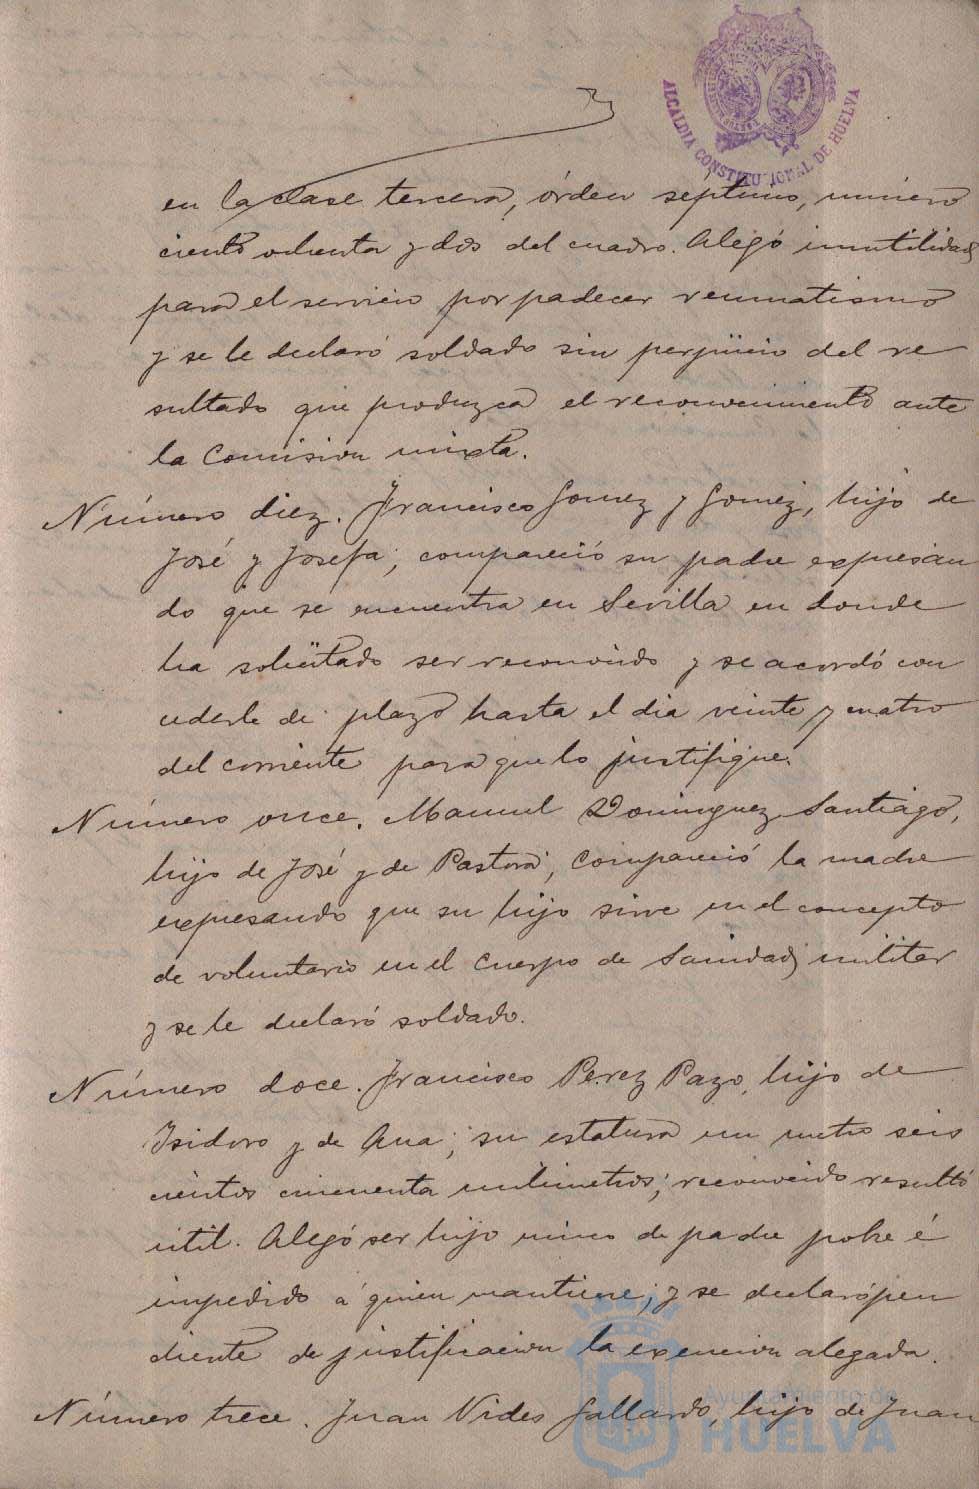 ALCALDIA CONSTITUCIONAL DE HUELVA
en la clase tercera, órden séptimo, número
ciento ochenta y dos del cuadro. Alegó inutilidad
para el servicio por padecer reumatismo
y se le declaró soldado sin perjuicio del re
sultado que produzca el reconocimiento ante
la Comision mixta.
Número diez. Francisco Gomez y Gomez, hijo de
José y Josefa; compareció su padre expresan
do que se encuentra en Sevilla en donde
ha solicitado ser reconocido y se acordó con
cederle de plazo hasta el dia veinte y cuatro
del corriente para que lo justifique.
Número once. Manuel Dominguez Santiago,
hijo de José y de Pastora; compareció la madre
expresando que su hijo sirve en el concepto
de voluntario en el Cuerpo de Sanidad militar
y se le declaró soldado.
Número doce. Francisco Perez Pazo, hijo de
Isidoro y de Ana; su estatura un metro seis
cientos cincuenta milimetros; reconocido resultó
útil. Alegó ser hijo único de padre pobre é
impedido á quien mantiene; y se declaró pen
diente de justificacion la exencion alegada.
Número trece. Juan Vides Gallardo, hijo de Juan
Ayuntamiento de
HUELVA